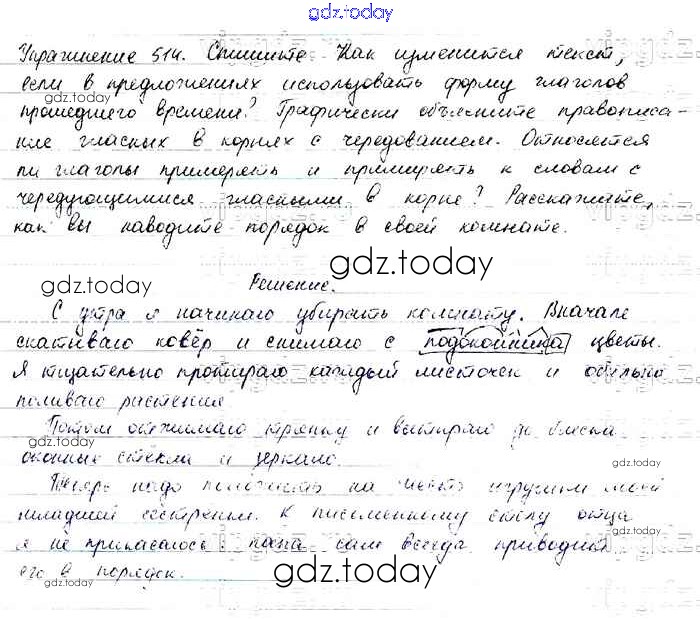 gdz.today
Упражнение 514. Спишите. Как изменится текст,
если в предложениях использовать форму глаголов
gdz.today
прошедшего времени? Графически объясните правописа-
ние гласных в корнях с чередованием. Относятся
ли глаголы примерять и примирять к словам с
чередующимися гласными в корне? Расскажите,
как вы наводите порядок в своей комнате.
gdz.today
gdz.today
Решение.
С утра я начинаю убирать комнату. Вначале
скатываю ковёр и снимаю с подоконника цветы.
Я тщательно протираю каждый листочек и обильно
поливаю растения
Потом отжимаю тряпку и вытираю до блеска
gdz.today
оконные стекла и зеркало.
gdz.today
Теперь надо положить на место игрушки моей
младшей сестрёнки. К письменному столу отца
gdz.today
я не прикасаюсь: папа сам всегда приводит
его в порядок.
gdz.today
gdz.today